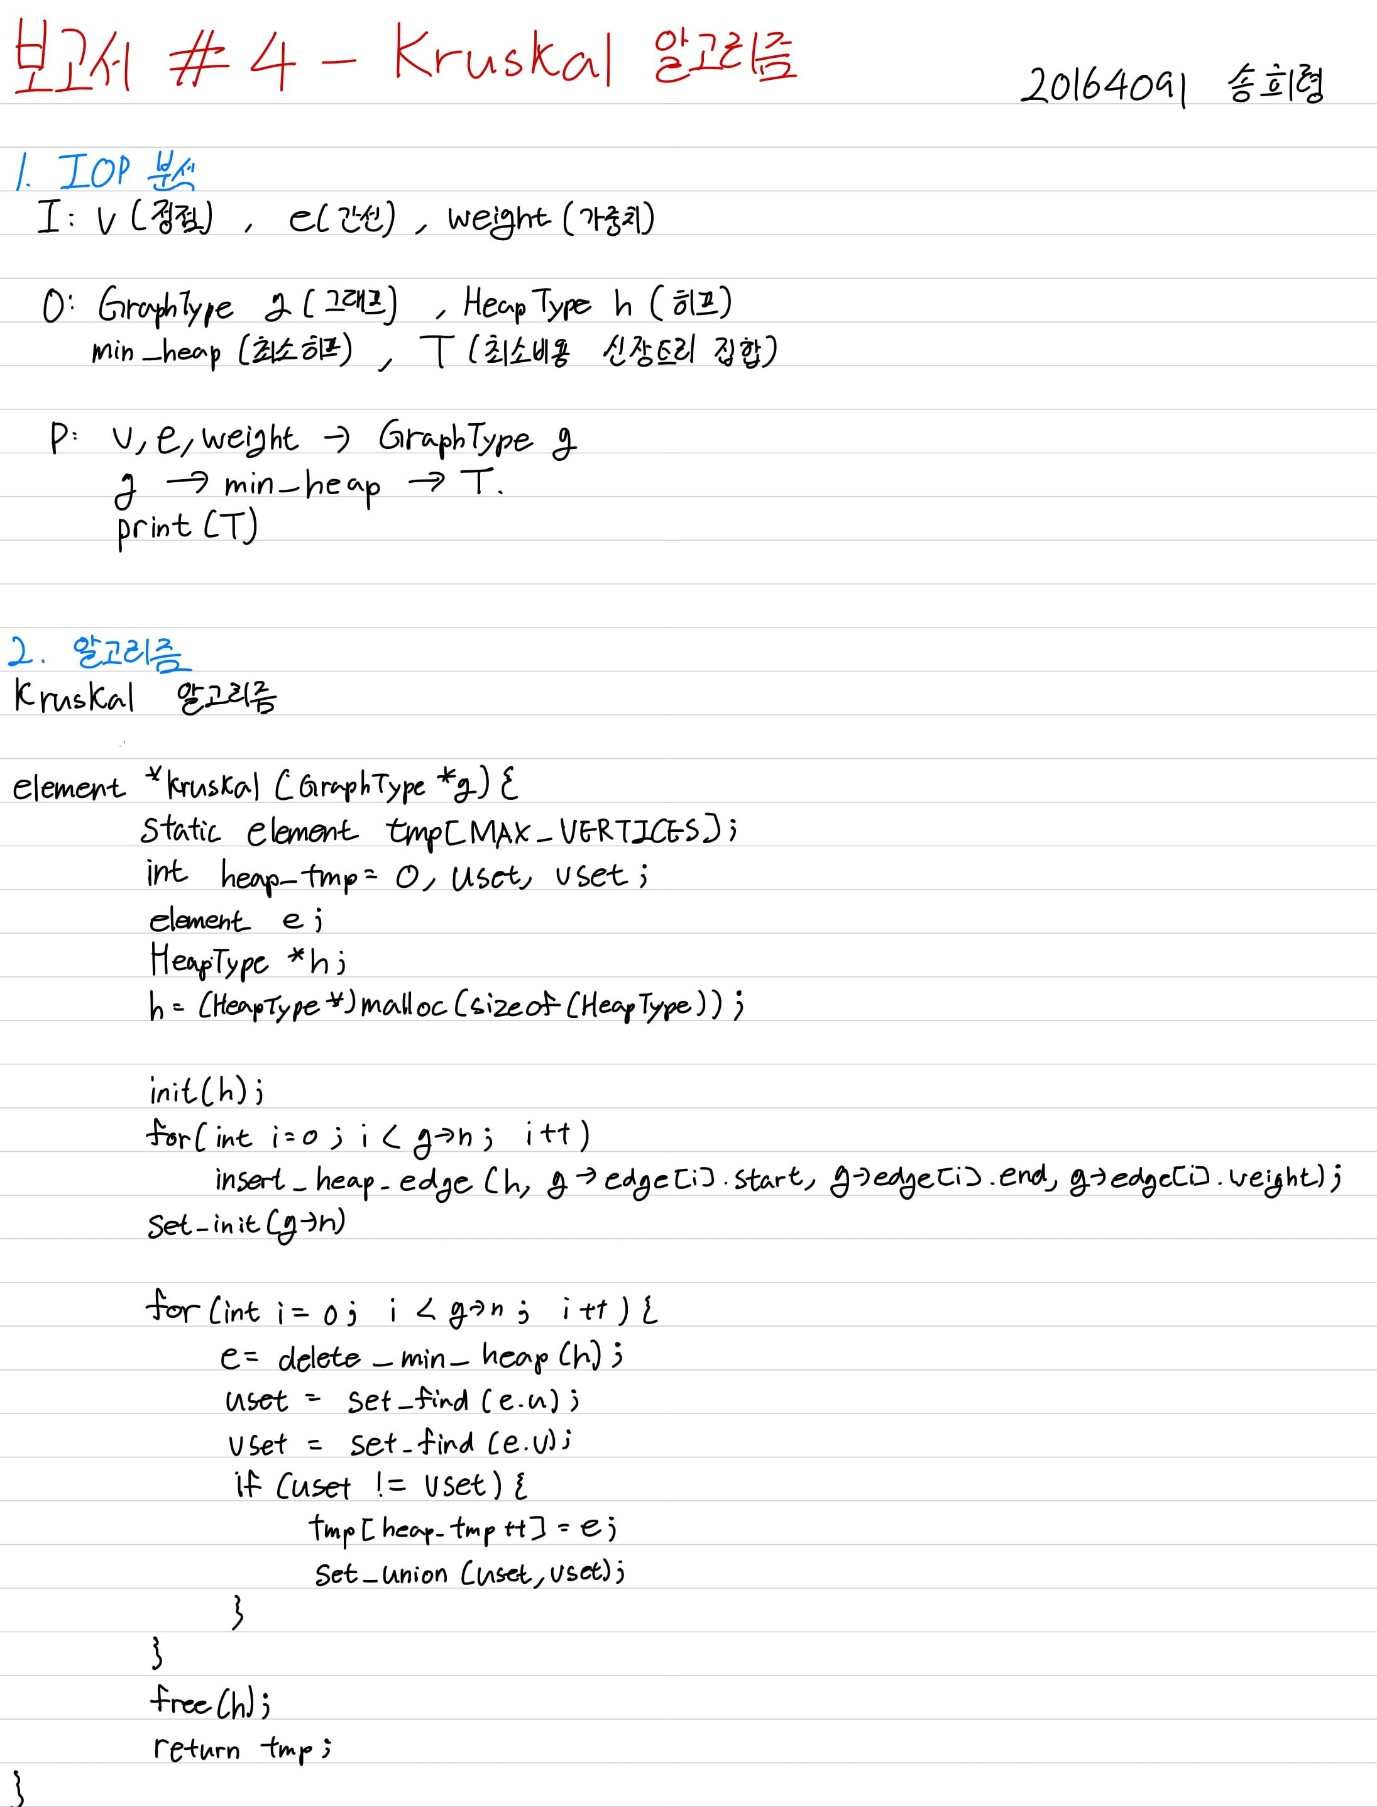 보고서 # 4 - Kruskal 알고리즘
20164091 송희령
1. IOP 분석
I: v (정점) , e(간선) , weight (가중치)
O: GraphType g (그래프) , HeapType h (히프)
min_heap (최소히프) , T (최소비용 신장트리 집합)
P: v, e, weight → GraphType g
g → min_heap → T.
print (T)
2. 알고리즘
Kruskal 알고리즘
element *kruskal (GraphType *g) {
static element tmp[MAX_VERTICES];
int heap_tmp = 0, uset, vset ;
element e ;
HeapType *h ;
h = (HeapType *)malloc(sizeof(HeapType)) ;
init(h) ;
for(int i=0 ; i < g→n ; i++)
insert_heap_edge (h, g→edge[i].start, g→edge[i].end, g→edge[i].weight) ;
set_init(g→n)
for (int i = 0 ; i < g→n ; i++) {
e = delete_min_heap (h) ;
uset = set_find (e.u) ;
vset = set_find (e.v) ;
if (uset != vset) {
tmp[heap_tmp++] = e ;
set_union (uset, vset) ;
}
}
free(h) ;
return tmp ;
}